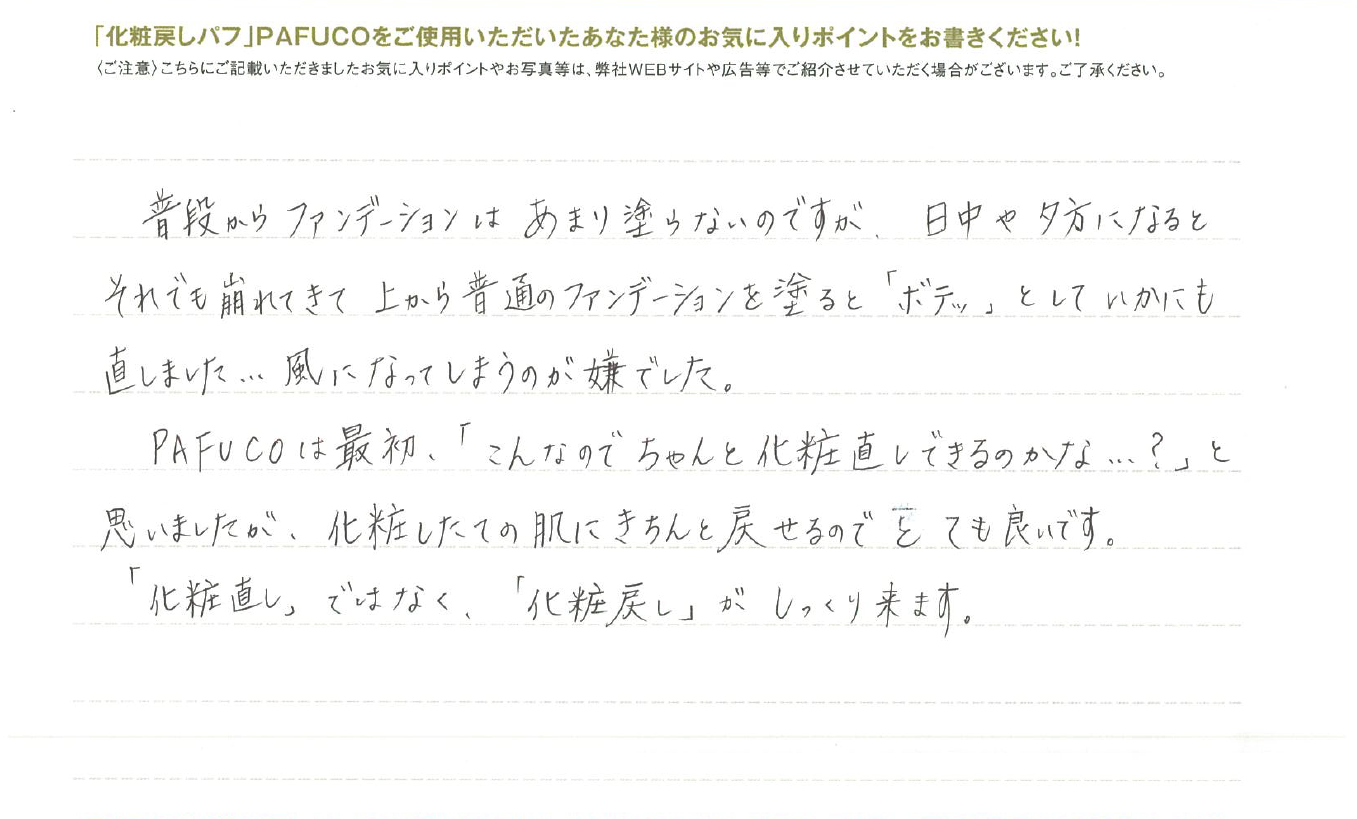 「化粧戻しパフ」PAFUCOをご使用いただいたあなた様のお気に入りポイントをお書きください!
〈ご注意〉こちらにご記載いただきましたお気に入りポイントやお写真等は、弊社WEBサイトや広告等でご紹介させていただく場合がございます。ご了承ください。
普段からファンデーションはあまり塗らないのですが、日中や夕方になると
それでも崩れてきて上から普通のファンデーションを塗ると「ボテッ」としていかにも
直しました…風になってしまうのが嫌でした。
PAFUCOは最初、「こんなのでちゃんと化粧直しできるのかな…?」と
思いましたが、化粧したての肌にきちんと戻せるのでとても良いです。
「化粧直し」ではなく、「化粧戻し」がしっくり来ます。